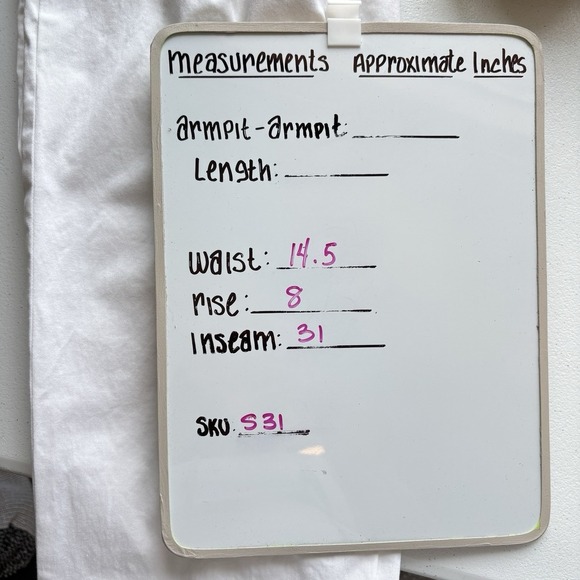 measurements Approximate Inches
armpit-armpit:
Length:
waist: 14.5
rise: 8
inseam: 31
SKU: S31